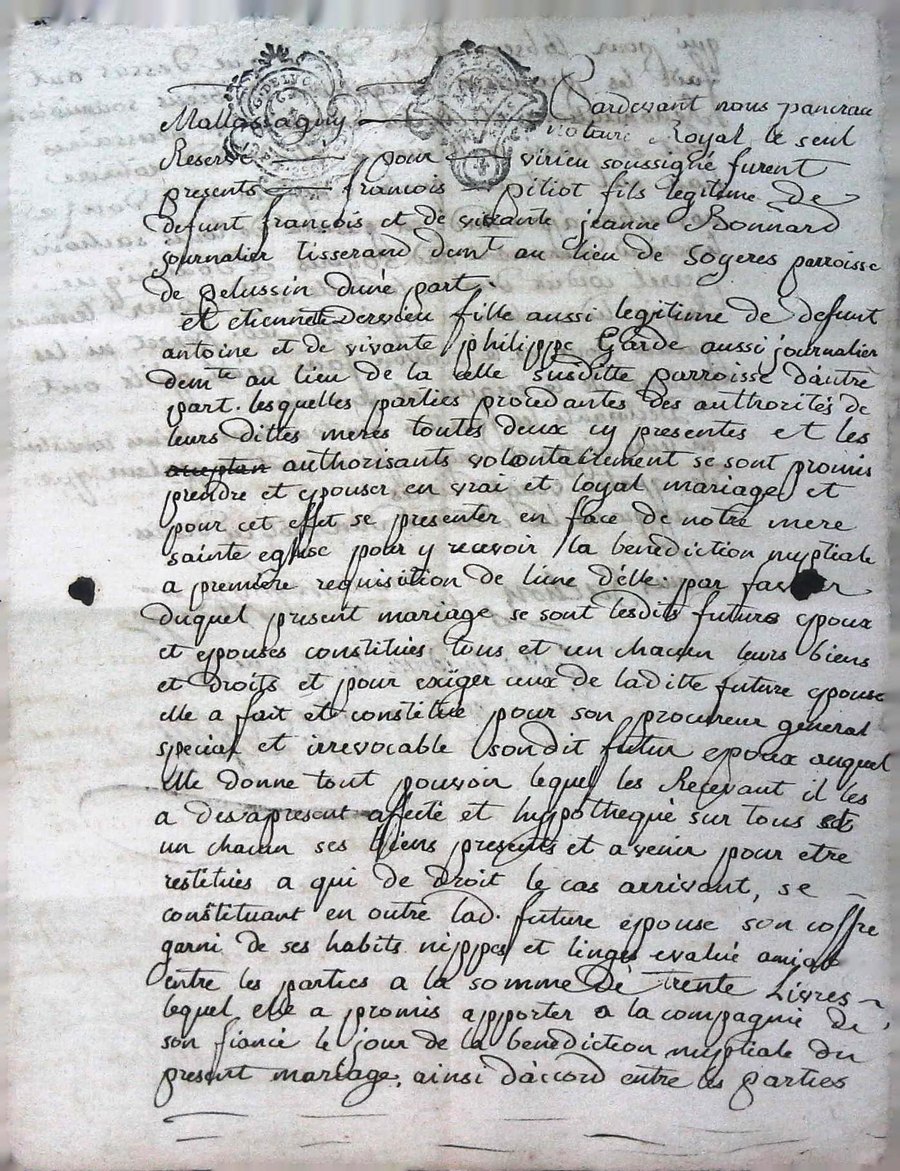 G. DE LYON
Pardevant nous pancrau
Mallassagny notaire Royal le seul
Reservé pour virieu soussigné furent
presents françois pitiot fils legitime de
defunt françois et de vivante jeanne Bonnard
journalier tisserand demt au lieu de Soyeres parroisse
de pelussin d'une part.
et etiennette Dervieu fille aussi legitime de defunt
antoine et de vivante philippe Garde aussi journalier
demte au lieu de la celle susditte parroisse d'autre
part. lesquelles parties procedantes des authorités de
leurs dittes meres toutes deux cy presentes et les
authorisants volontairement se sont promis
prendre et epouser en vrai et loyal mariage et
pour cet effet se presenter en face de notre mere
sainte eglise pour y recevoir la benediction nuptiale
a premiere requisition de l'une d'elle. par faveur
duquel present mariage se sont lesdits futurs epoux
et epouses constitués tous et un chacun leurs biens
et droits et pour exïger ceux de laditte future epouse
elle a fait et constitue pour son procureur general
special et irrevocable sondit futur epoux auquel
elle donne tout pouvoir lequel les Recevant il les
a des apresent affecté et hypothequé sur tous et
un chacun ses biens presents et avenir pour etre
restitués a qui de droit le cas arrivant, se
constituant en outre lad. future epouse son coffre
garni de ses habits nippes et linges evalué amiab
entre les parties a la somme de trente Livres
lequel elle a promis apporter a la compagnie de
son fiancé le jour de la benediction nuptiale du
present mariage, ainsi d'accord entre les parties